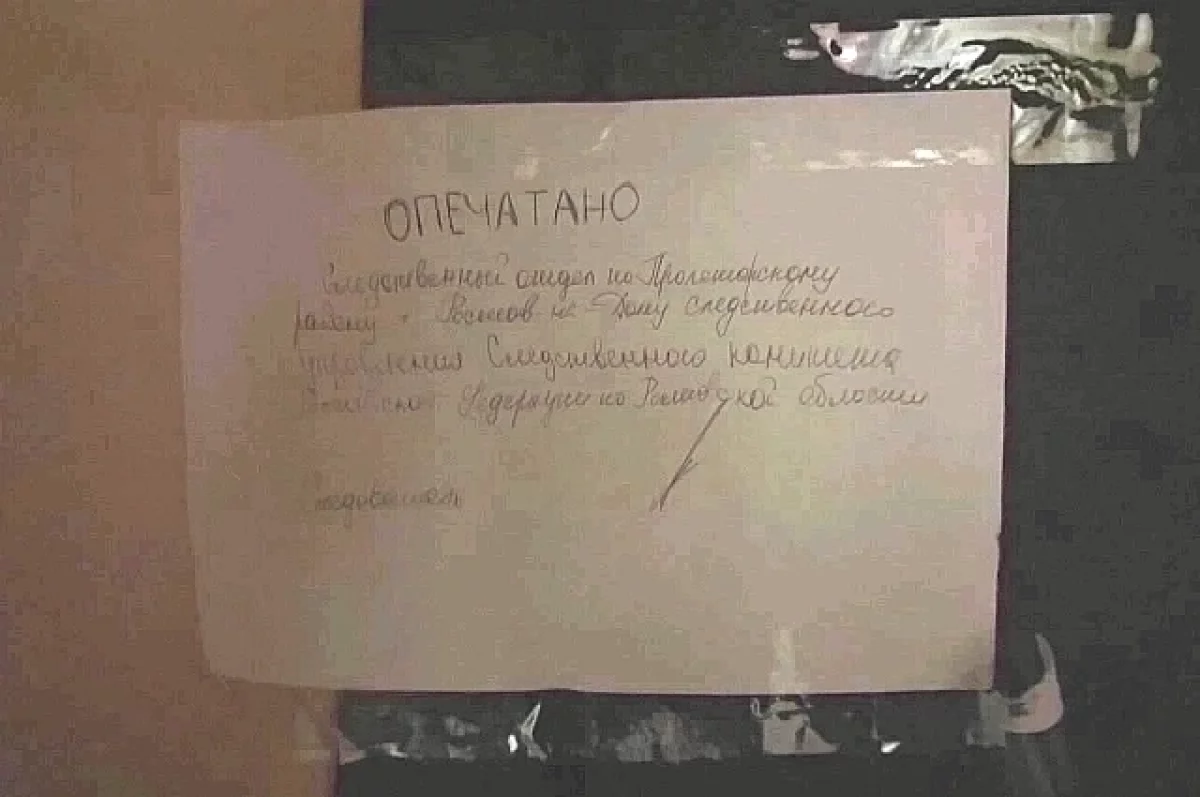 ОПЕЧАТАНО
Следственный отдел по Пролетарскому
району г. Ростов-на-Дону следственного
управления Следственного комитета
Российской Федерации по Ростовской области
Следователь